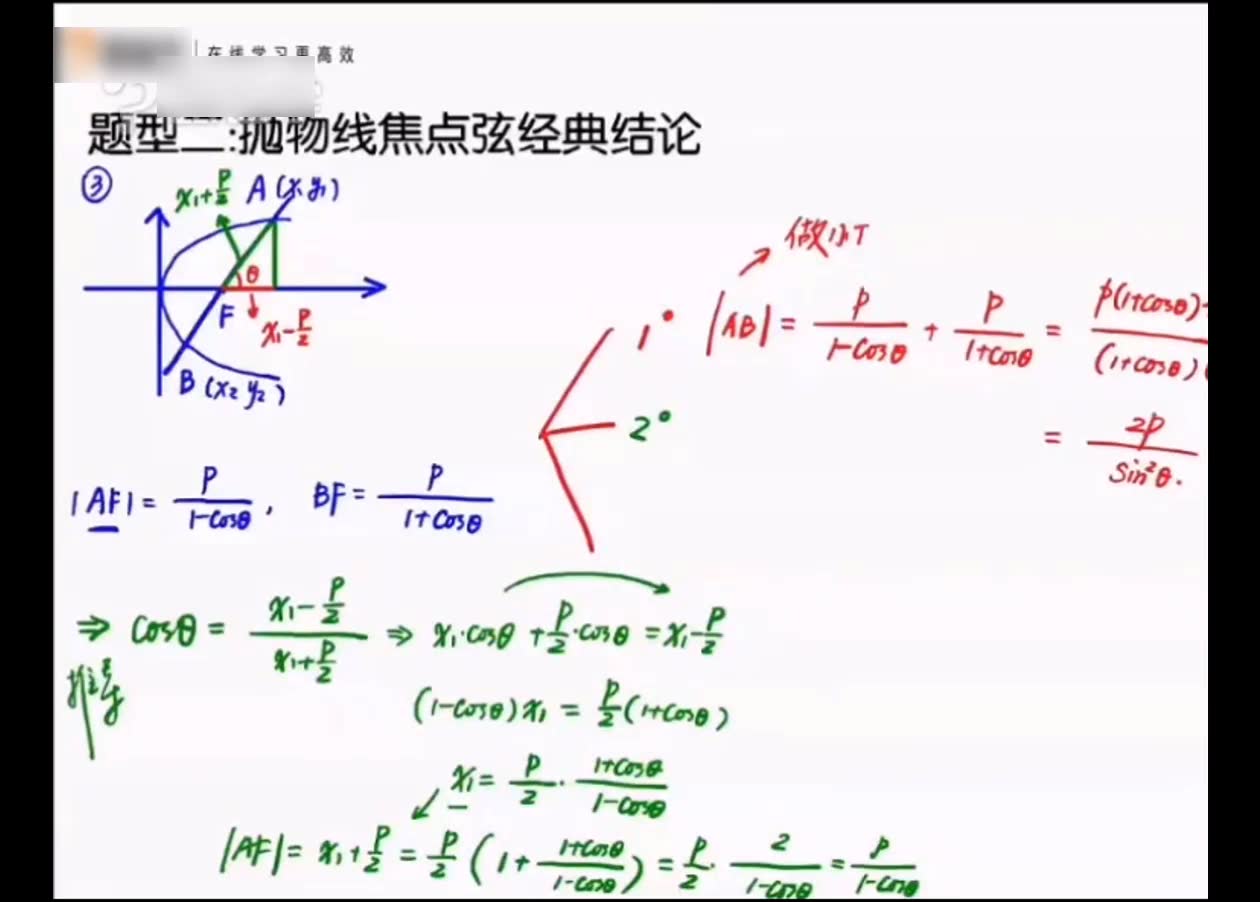 在线学习更高效
题型二:抛物线焦点弦经典结论
③
x₁+p/2 A(x₁y₁)
θ
F x₁-p/2
B(x₂ y₂)
|AF|=p/(1-cosθ), BF=p/(1+cosθ)
做小T
1° |AB|=p/(1-cosθ)+p/(1+cosθ)=p(1+cosθ)+/(1+cosθ)(
=2p/sin²θ.
2°
⇒ cosθ=(x₁-p/2)/(x₁+p/2) ⇒ x₁·cosθ+p/2·cosθ=x₁-p/2
推导
(1-cosθ)x₁=p/2(1+cosθ)
x₁=p/2·(1+cosθ)/(1-cosθ)
|AF|=x₁+p/2=p/2(1+(1+cosθ)/(1-cosθ))=p/2·2/(1-cosθ)=p/(1-cosθ)